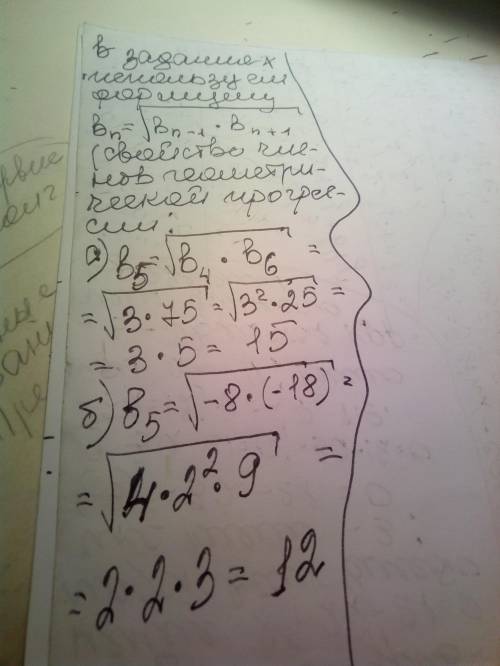 в заданиях
используем
формулу
Bn=√(Bn-1 · Bn+1)
(свойство чле-
нов геометри-
ческой прогре-
сии:
а) B5=√(B4 · B6) =
=√(3·75) = √(3²·25) =
= 3·5 = 15
б) B5=√(-8·(-18)) =
=√(4·2²·9) =
=2·2·3=12